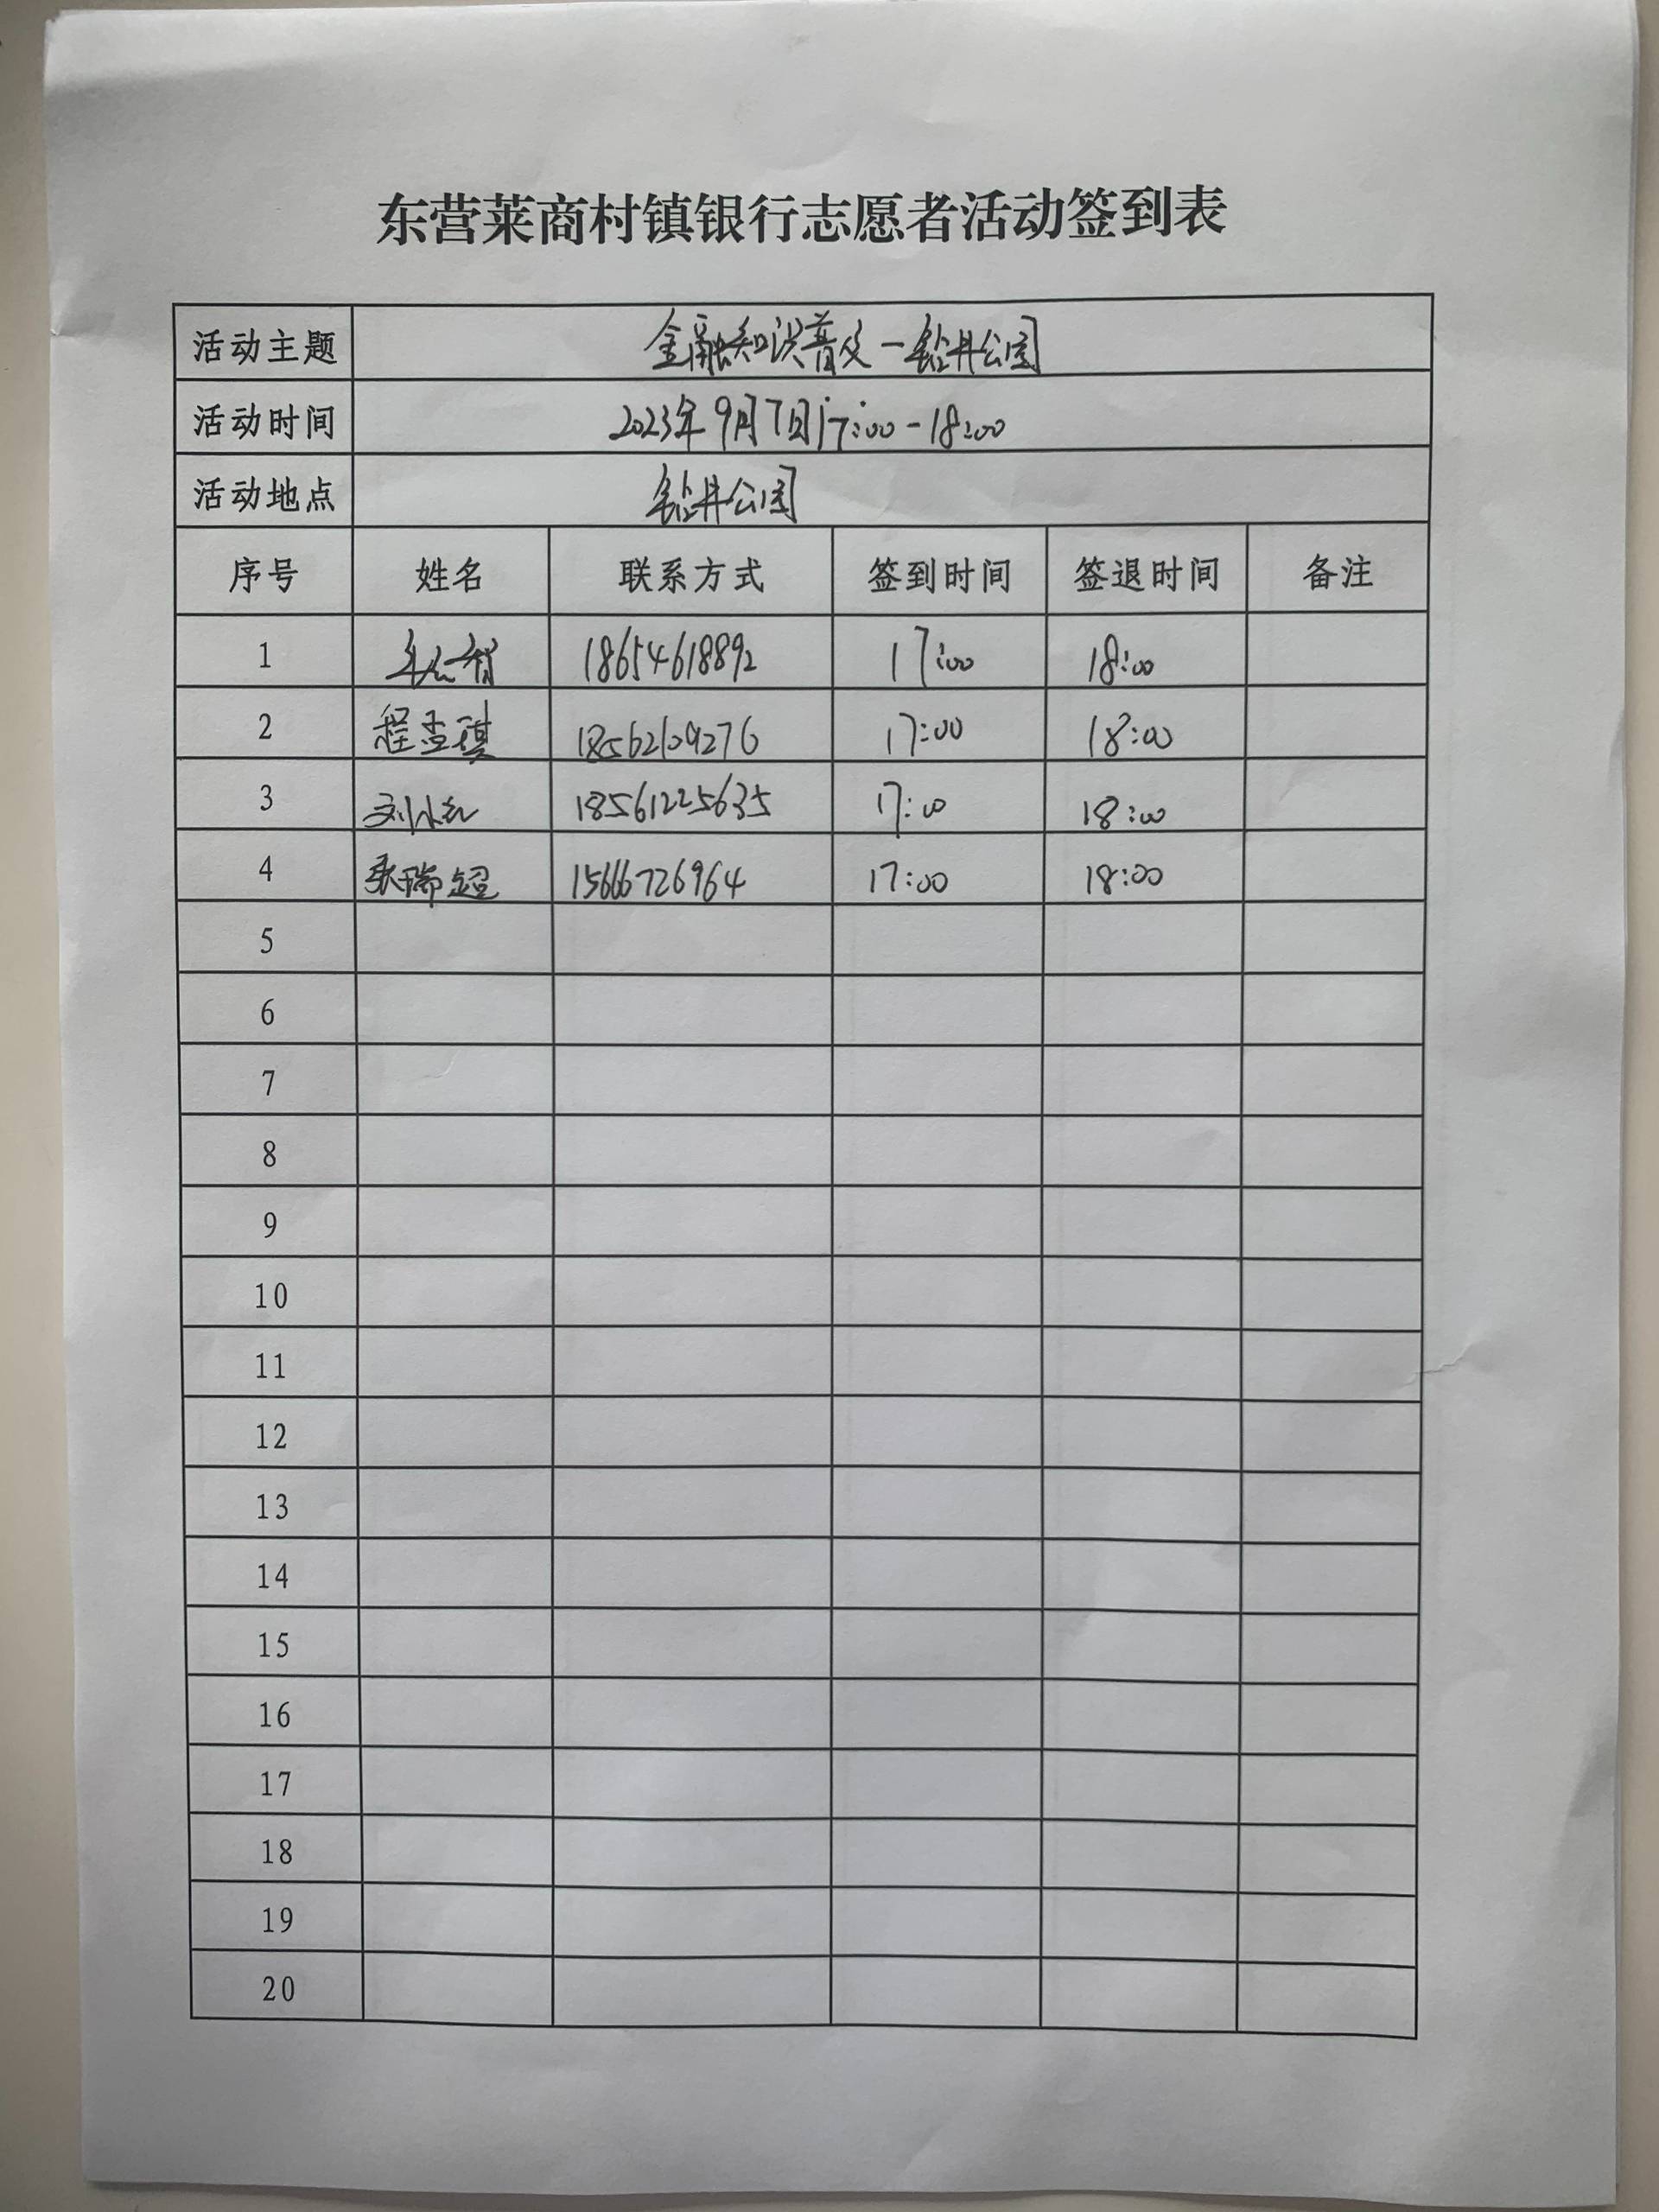 东营莱商村镇银行志愿者活动签到表
活动主题 金融知识普及-钻井公园
活动时间 2023年9月7日17:00-18:00
活动地点 钻井公园
序号 姓名 联系方式 签到时间 签退时间 备注
1 18654618892 17:00 18:00
2 程孟琪 18562109276 17:00 18:00
3 18561225635 17:00 18:00
4 张瑞超 15666726964 17:00 18:00
5
6
7
8
9
10
11
12
13
14
15
16
17
18
19
20